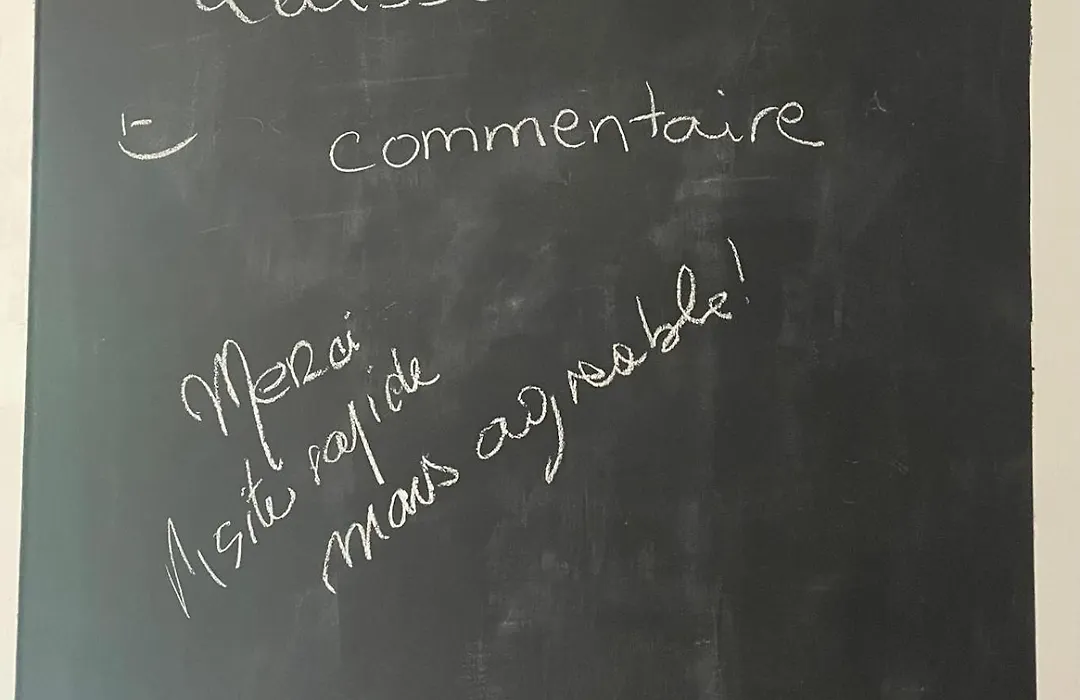 commentaire
Merci
Visite rapide
mais agréable!